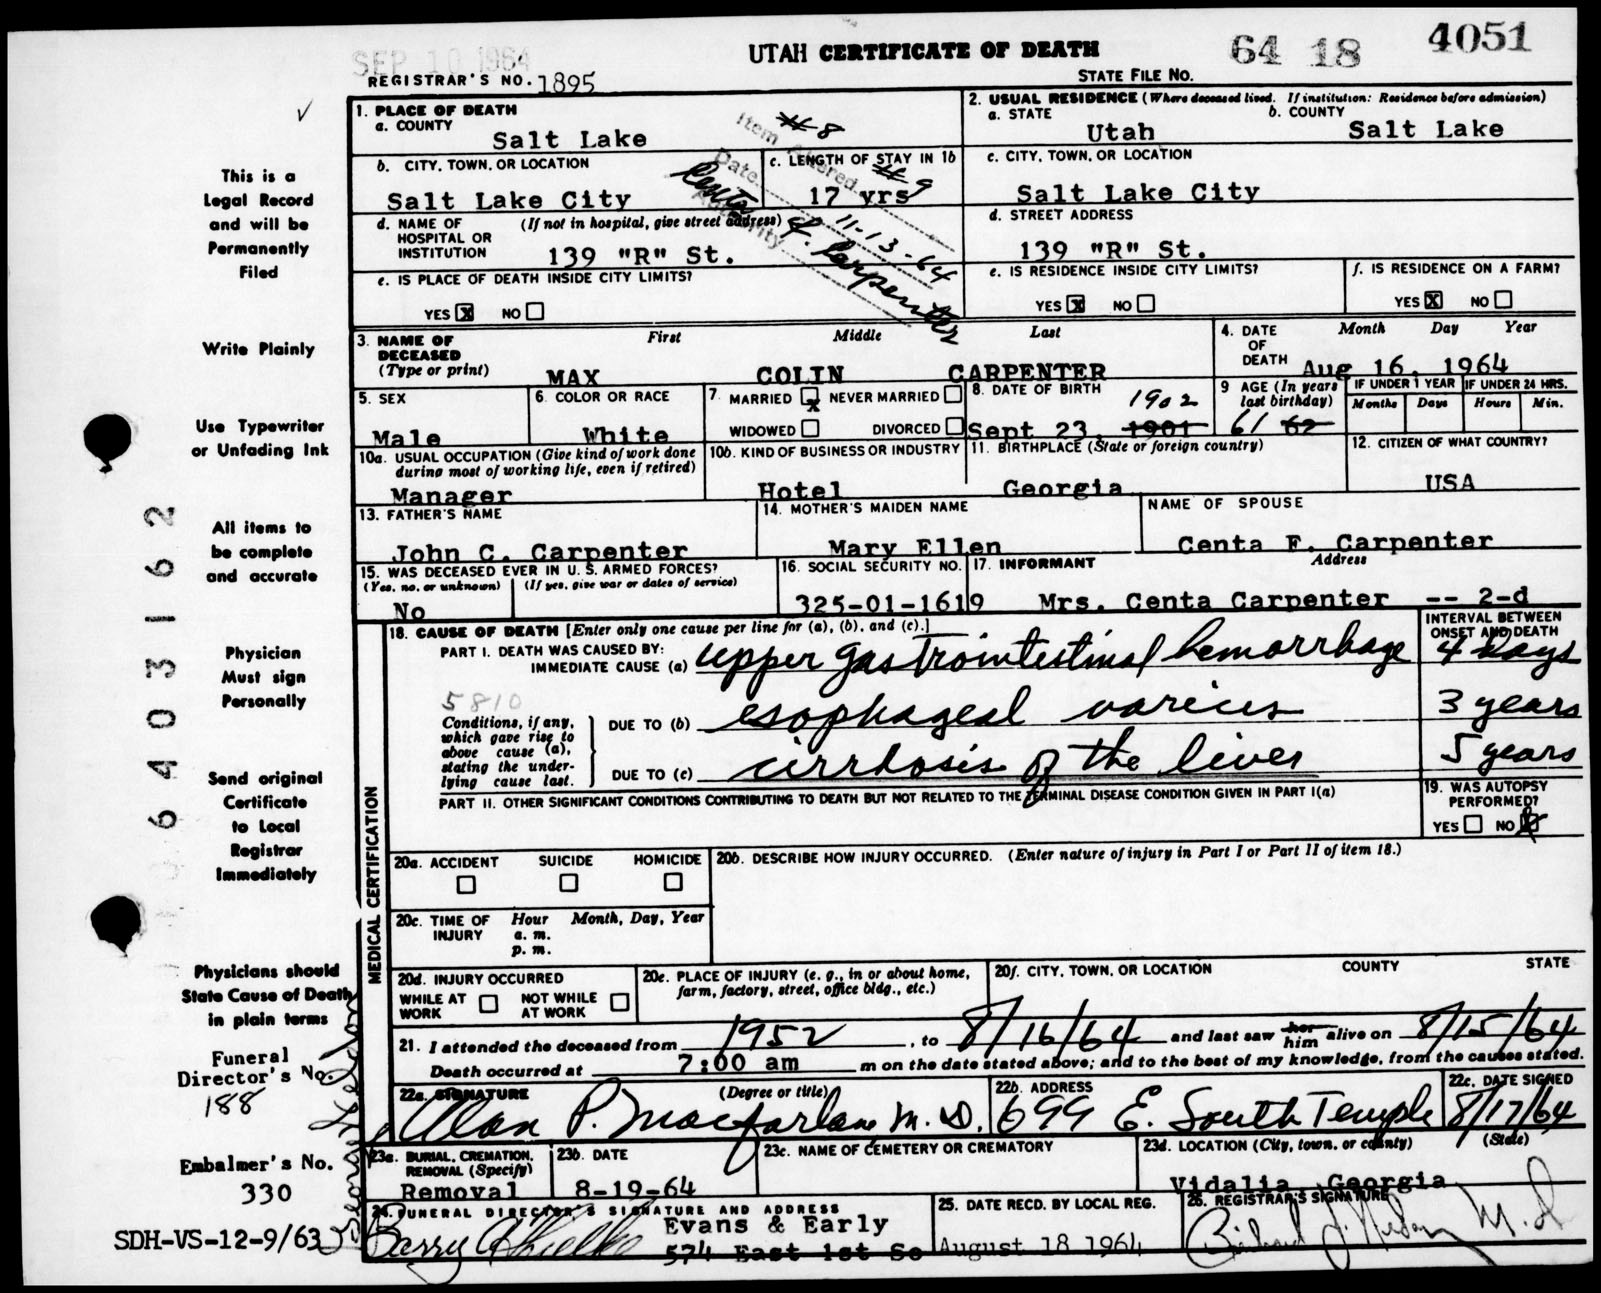 SEP 10 1964
UTAH CERTIFICATE OF DEATH
64 18 4051
REGISTRAR'S NO. 1895
STATE FILE NO.
This is a
Legal Record
and will be
Permanently
Filed
Write Plainly
Use Typewriter
or Unfading Ink
All items to
be complete
and accurate
Physician
Must sign
Personally
Send original
Certificate
to Local
Registrar
Immediately
Physicians should
State Cause of Death
in plain terms
Funeral
Director's No.
188
Embalmer's No.
330
SDH-VS-12-9/63
6403162
1. PLACE OF DEATH
a. COUNTY
Salt Lake
Item Altered #8 #9
Date 11-13-64
Authority Centa F. Carpenter
2. USUAL RESIDENCE (Where deceased lived. If institution: Residence before admission)
a. STATE b. COUNTY
Utah Salt Lake
b. CITY, TOWN, OR LOCATION
Salt Lake City
c. LENGTH OF STAY IN 1b
17 yrs
c. CITY, TOWN, OR LOCATION
Salt Lake City
d. NAME OF HOSPITAL OR INSTITUTION (If not in hospital, give street address)
139 "R" St.
d. STREET ADDRESS
139 "R" St.
e. IS PLACE OF DEATH INSIDE CITY LIMITS?
YES X NO
e. IS RESIDENCE INSIDE CITY LIMITS?
YES X NO
f. IS RESIDENCE ON A FARM?
YES X NO
3. NAME OF DECEASED (Type or print)
First Middle Last
MAX COLIN CARPENTER
4. DATE OF DEATH Month Day Year
Aug 16, 1964
5. SEX
Male
6. COLOR OR RACE
White
7. MARRIED X NEVER MARRIED
WIDOWED DIVORCED
8. DATE OF BIRTH
1902
Sept 23, 1901
9 AGE (In years last birthday)
61 62
IF UNDER 1 YEAR IF UNDER 24 HRS.
Months Days Hours Min.
10a. USUAL OCCUPATION (Give kind of work done during most of working life, even if retired)
Manager
10b. KIND OF BUSINESS OR INDUSTRY
Hotel
11. BIRTHPLACE (State or foreign country)
Georgia
12. CITIZEN OF WHAT COUNTRY?
USA
13. FATHER'S NAME
John C. Carpenter
14. MOTHER'S MAIDEN NAME
Mary Ellen
NAME OF SPOUSE
Centa F. Carpenter
15. WAS DECEASED EVER IN U. S. ARMED FORCES?
(Yes, no, or unknown) (If yes, give war or dates of service)
No
16. SOCIAL SECURITY NO.
325-01-1619
17. INFORMANT Address
Mrs. Centa Carpenter -- 2-d
MEDICAL CERTIFICATION
18. CAUSE OF DEATH [Enter only one cause per line for (a), (b), and (c).]
INTERVAL BETWEEN ONSET AND DEATH
PART I. DEATH WAS CAUSED BY:
IMMEDIATE CAUSE (a) upper gastrointestinal hemorrhage 4 days
5810
Conditions, if any, which gave rise to above cause (a), stating the underlying cause last.
DUE TO (b) esophageal varices 3 years
DUE TO (c) cirrhosis of the liver 5 years
PART II. OTHER SIGNIFICANT CONDITIONS CONTRIBUTING TO DEATH BUT NOT RELATED TO THE TERMINAL DISEASE CONDITION GIVEN IN PART I(a)
19. WAS AUTOPSY PERFORMED?
YES NO X
20a. ACCIDENT SUICIDE HOMICIDE
20b. DESCRIBE HOW INJURY OCCURRED. (Enter nature of injury in Part I or Part II of item 18.)
20c. TIME OF INJURY Hour Month, Day, Year
a. m.
p. m.
20d. INJURY OCCURRED
WHILE AT WORK NOT WHILE AT WORK
20e. PLACE OF INJURY (e. g., in or about home, farm, factory, street, office bldg., etc.)
20f. CITY, TOWN, OR LOCATION COUNTY STATE
21. I attended the deceased from 1952, to 8/16/64 and last saw her him alive on 8/15/64
Death occurred at 7:00 am m on the date stated above; and to the best of my knowledge, from the causes stated.
22a. SIGNATURE (Degree or title)
Alan P. Macfarlane M.D.
22b. ADDRESS
699 E. South Temple
22c. DATE SIGNED
8/17/64
23a. BURIAL, CREMATION, REMOVAL (Specify)
Removal
23b. DATE
8-19-64
23c. NAME OF CEMETERY OR CREMATORY
23d. LOCATION (City, town, or county) (State)
Vidalia, Georgia
24. FUNERAL DIRECTOR'S SIGNATURE AND ADDRESS
Evans & Early
574 East 1st So
25. DATE RECD. BY LOCAL REG.
August 18 1964
26. REGISTRAR'S SIGNATURE